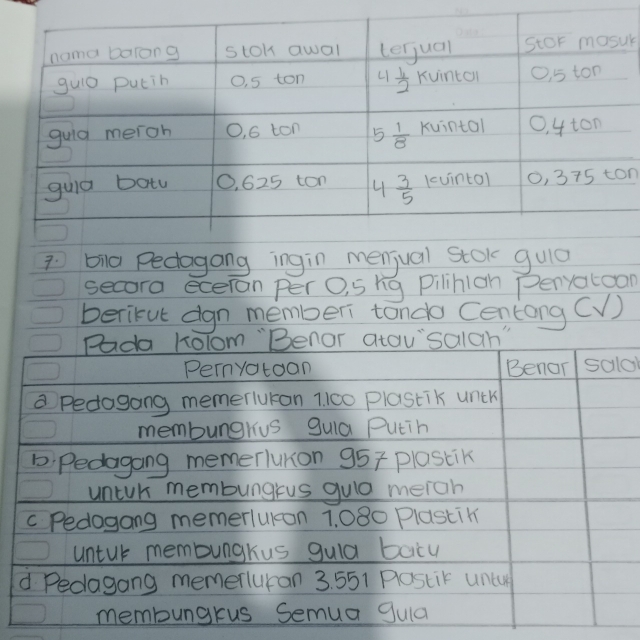 nama barang stok awal terjual stok masuk
gula putih 0,5 ton 4 1/2 kuintal 0,5 ton
gula merah 0,6 ton 5 1/8 kuintal 0,4 ton
gula batu 0.625 ton 4 3/5 kuintal 0,375 ton
7. bila Pedagang ingin menjual stok gula
secara eceran Per 0,5 kg Pilihlah Penyataan
berikut dgn memberi tanda Centang (V)
Pada kolom "Benar atau "salah"
Pernyataan Benar salah
a Pedagang memerlukan 1.100 Plastik untk
membungkus gula Putih
b Pedagang memerlukan 957 plastik
untuk membungkus gula merah
c Pedagang memerlukan 1,080 Plastik
untuk membungkus gula batu
d Pedagang memerlukan 3.551 Plastik untuk
membungkus Semua gula